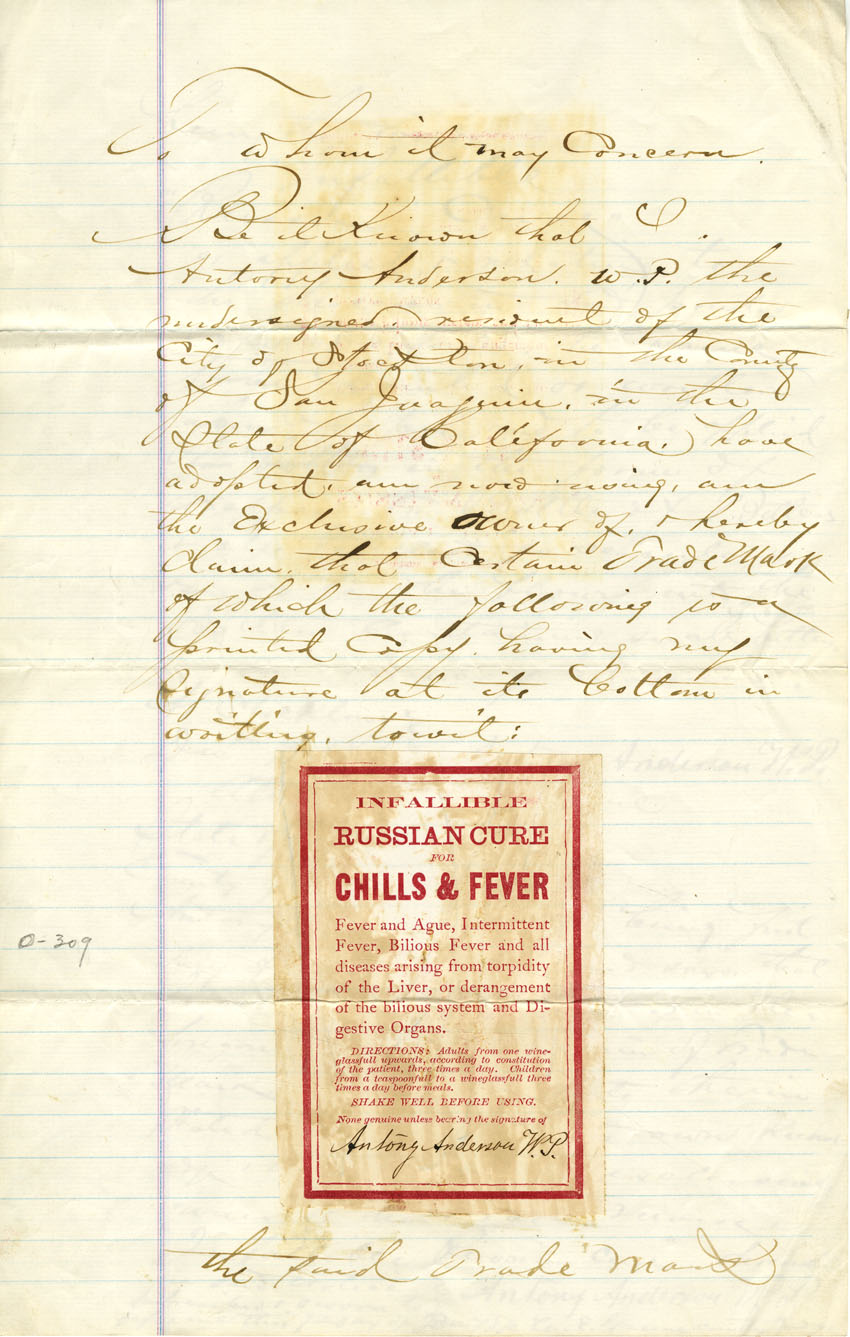 To whom it may Concern.
Be it Known that I.
Antony Anderson. W.P. the
undersigned resident of the
City of Stockton, in the County
of San Joaquin, in the
State of California, have
adopted, am now using, am
the Exclusive owner of, & hereby
claim, that Certain Trade Mark
of which the following is a
printed Copy having my
Signature at its bottom in
writing, towit:
INFALLIBLE
RUSSIAN CURE
FOR
CHILLS & FEVER
Fever and Ague, Intermittent
Fever, Bilious Fever and all
diseases arising from torpidity
of the Liver, or derangement
of the bilious system and Di-
gestive Organs.
DIRECTIONS: Adults from one wine-
glassfull upwards, according to constitution
of the patient, three times a day. Children
from a teaspoonfull to a wineglassfull three
times a day before meals.
SHAKE WELL BEFORE USING.
None genuine unless bearing the signature of
Antony Anderson W.P.
O-309
the said Trade Mark